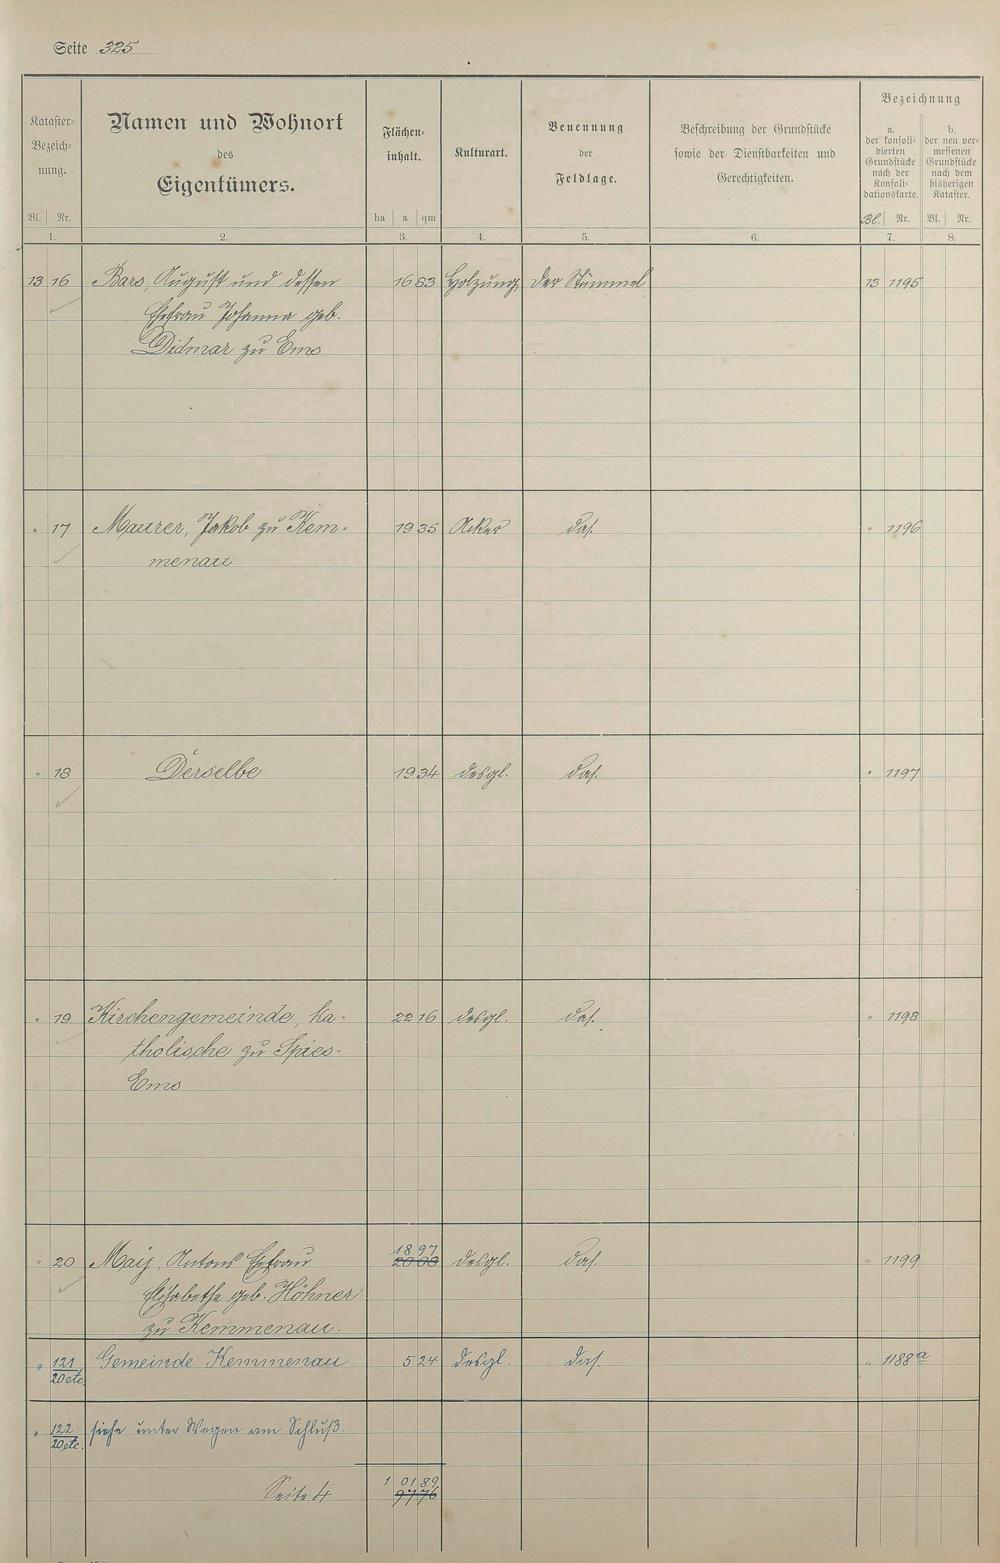 Seite 325
Kataster-
Bezeich-
nung.
Bl. Nr.
1.
Namen und Wohnort
des
Eigentümers.
2.
Flächen-
inhalt.
ha a qm
3.
Kulturart.
4.
Benennung
der
Feldlage.
5.
Beschreibung der Grundstücke
sowie der Dienstbarkeiten und
Gerechtigkeiten.
6.
Bezeichnung
a.
der konsoli-
dierten
Grundstücke
nach der
Konsoli-
dationskarte.
Bl. Nr.
7.
b.
der neu ver-
messenen
Grundstücke
nach dem
bisherigen
Kataster.
Bl. Nr.
8.
13 16 August und dessen 16 83 Holzung der Stümmel 13 1195
Ehefrau Johanna geb.
Didmar zu Ems
" 17 Maurer, Jakob zu Kem- 19 35 Acker das. " 1196
menau
" 18 Derselbe 19 34 desgl. das. " 1197
" 19 Kirchengemeinde, ka- 22 16 desgl. das. " 1198
tholische zu Spies-
Ems
" 20 May, Antons Ehefrau 18 97 desgl. das. " 1199
Elisabethe geb. Höhner
zu Kemmenau.
" 121/20 etc Gemeinde Kemmenau 5 24 desgl. das. " 1188 a
" 122/20 etc. siehe unter Wegen am Schluß.
Seite 4 1 01 89
97 76